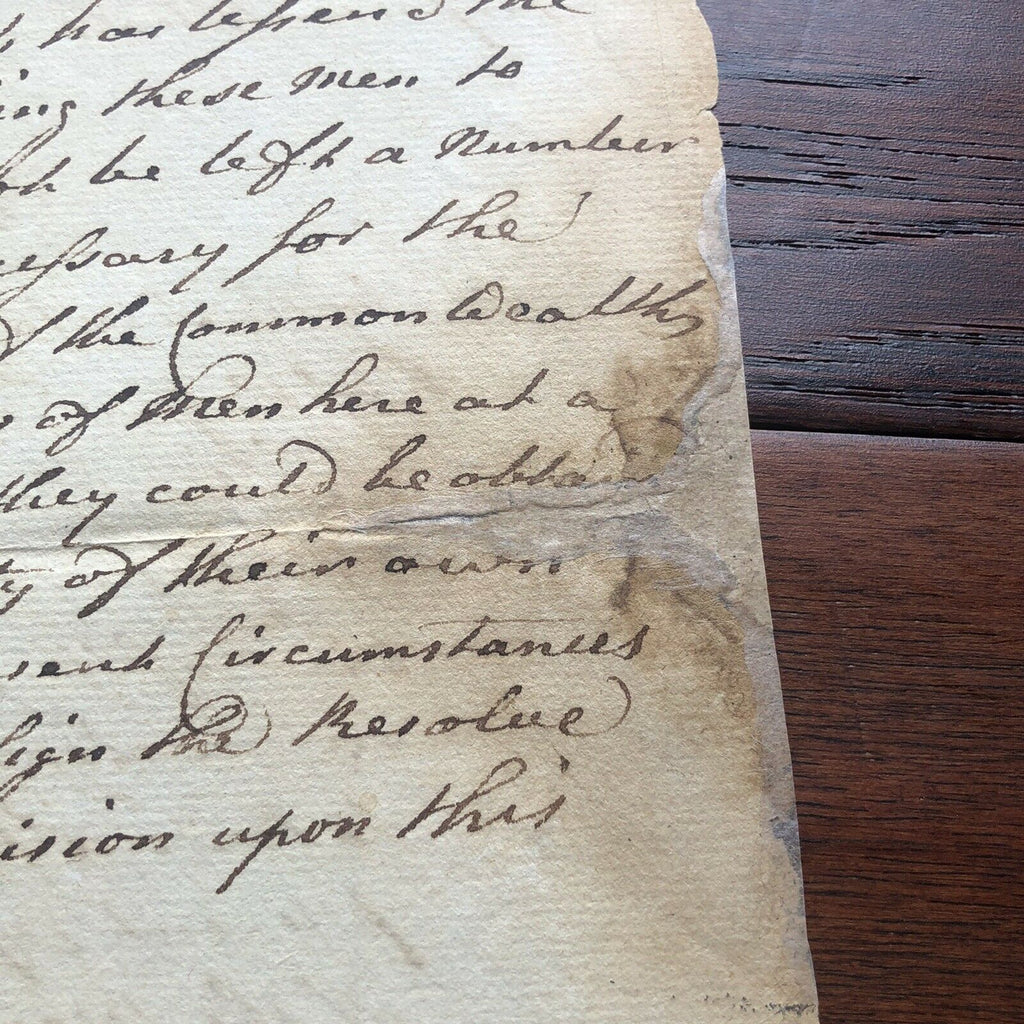 has lessend the
ing these men to
be left a Number
cessary for the
of the Common Wealths
of Men here at a
they could be obtain
ty of their own
sent Circumstances
sign the Resolve
ision upon this